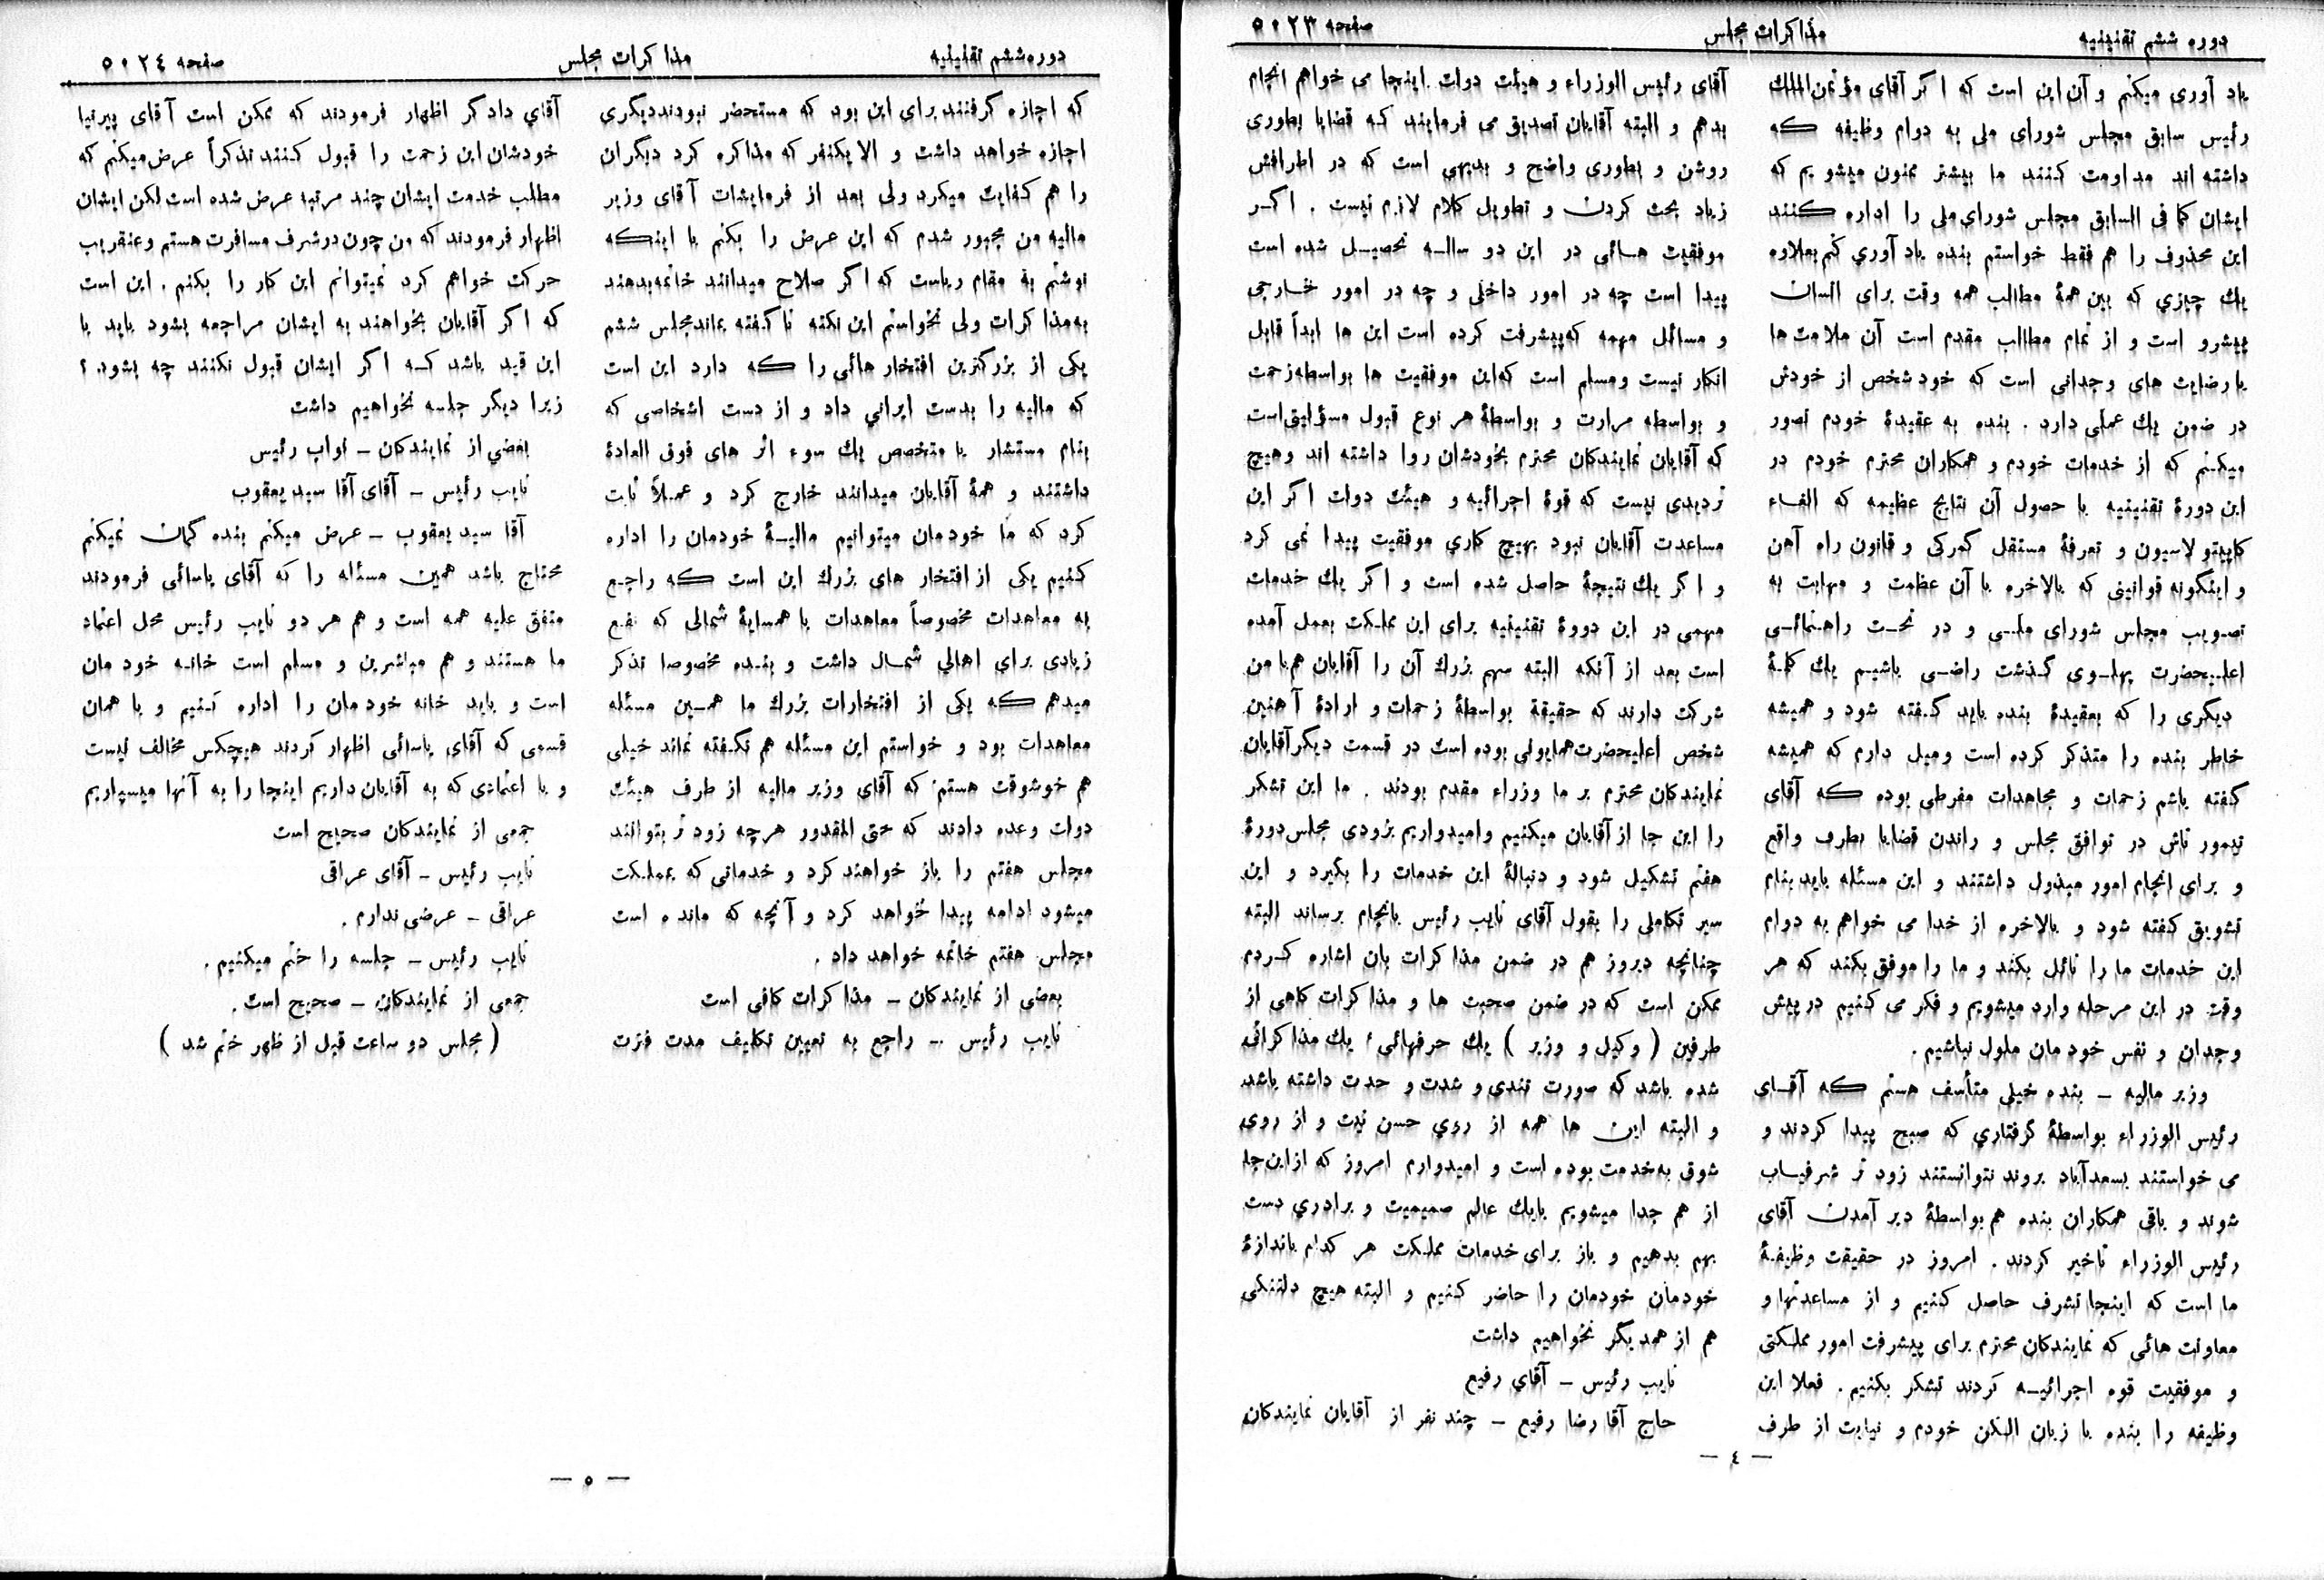 دوره ششم تقنینیه
مذاکرات مجلس
صفحه ۵۰۲۳
یاد آوری میکنم و آن این است که اگر آقای مؤتمن‌الملك
رئیس سابق مجلس شورای ملی به دوام وظیفه که
داشته اند مداومت کنند ما بیشتر ممنون میشویم که
ایشان کما فی السابق مجلس شورای ملی را اداره کنند
این محذوف را هم فقط خواستم بنده یاد آوری کنم بعلاوه
یك چیزی که بین همهٔ مطالب همه وقت برای انسان
پیشرو است و از تمام مطالب مقدم است آن ملامت ها
یا رضایت های وجدانی است که خود شخص از خودش
در ضمن یك عملی دارد . بنده به عقیدهٔ خودم تصور
میکنم که از خدمات خودم و همکاران محترم خودم در
این دورهٔ تقنینیه یا حصول آن نتایج عظیمه که الغاء
کاپیتولاسیون و تعرفهٔ مستقل گمرکی و قانون راه آهن
و اینگونه قوانینی که بالاخره با آن عظمت و مهابت به
تصویب مجلس شورای ملی و در تحت راهنمائی
اعلیحضرت پهلوی گذشت راضی باشیم یك کلمهٔ
دیگری را که بعقیدهٔ بنده باید گفته شود و همیشه
خاطر بنده را متذکر کرده است ومیل دارم که همیشه
گفته باشم زحمات و مجاهدات مفرطی بوده که آقای
تیمور تاش در توافق مجلس و راندن قضایا بطرف واقع
و برای انجام امور مبذول داشتند و این مسئله باید بنام
تشویق گفته شود و بالاخره از خدا می خواهم به دوام
این خدمات ما را نائل بکند و ما را موفق بکند که هر
وقت در این مرحله وارد میشویم و فکر می کنیم در پیش
وجدان و نفس خودمان ملول نباشیم .
وزیر مالیه ــ بنده خیلی متأسف هستم که آقای
رئیس الوزراء بواسطهٔ گرفتاری که صبح پیدا کردند و
می خواستند بسعدآباد بروند نتوانستند زود تر شرفیاب
شوند و باقی همکاران بنده هم بواسطهٔ دیر آمدن آقای
رئیس الوزراء تاخیر کردند . امروز در حقیقت وظیفهٔ
ما است که اینجا تشرف حاصل کنیم و از مساعدتها و
معاونت هائی که نمایندکان محترم برای پیشرفت امور مملکتی
و موفقیت قوه اجرائیه کردند تشکر بکنیم . فعلا این
وظیفه را بنده با زبان الکن خودم و نیابت از طرف
آقای رئیس الوزراء و هیئت دولت اینجا می خواهم انجام
بدهم و البته آقایان تصدیق می فرمایند که قضایا بطوری
روشن و بطوری واضح و بدیهی است که در اطرافش
زیاد بحث کردن و تطویل کلام لازم نیست . اگر
موفقیت هائی در این دو ساله تحصیل شده است
پیدا است چه در امور داخلی و چه در امور خارجی
و مسائل مهمه که‌پیشرفت کرده است این ها ابداً قابل
انکار نیست ومسلم است که‌این موفقیت ها بواسطه‌زحمت
و بواسطه مرارت و بواسطهٔ هر نوع قبول مسؤلیتی‌است
که آقایان نمایندکان محترم بخودشان روا داشته اند وهیچ
تردیدی نیست که قوهٔ اجرائیه و هیئت دولت اگر این
مساعدت آقایان نبود بهیچ کاری موفقیت پیدا نمی کرد
و اگر یك نتیجهٔ حاصل شده است و اگر یك خدمات
مهمی در این دورهٔ تقنینیه برای این مملکت بعمل آمده
است بعد از آنکه البته سهم بزرك آن را آقایان هم‌با من
شرکت دارند که حقیقة بواسطهٔ زحمات و ارادهٔ آهنین
شخص اعلیحضرت‌همایونی بوده است در قسمت دیگر آقایان
نمایندکان محترم بر ما وزراء مقدم بودند . ما این تشکر
را این جا از آقایان میکنیم وامیدواریم بزودی مجلس‌دورهٔ
هفتم تشکیل شود و دنبالهٔ این خدمات را بگیرد و این
سیر تکاملی را بقول آقای نایب رئیس بانجام برساند البته
چنانچه دیروز هم در ضمن مذاکرات بان اشاره کردم
ممکن است که در ضمن صحبت ها و مذاکرات کاهی از
طرفین ( وکیل و وزیر ) یك حرفهائی، یك مذاکراتی
شده باشد که صورت تندی و شدت و حدت داشته باشد
و البته این ها همه از روی حسن نیت و از روی
شوق به‌خدمت بوده است و امیدوارم امروز که از‌این‌جا
از هم جدا میشویم بایك عالم صمیمیت و برادری دست
بهم بدهیم و باز برای خدمات مملکت هر کدام باندازهٔ
خودمان خودمان را حاضر کنیم و البته هیچ دلتنکی
هم از همدیگر نخواهیم داشت
نایب رئیس ــ آقای رفیع
حاج آقا رضا رفیع ــ چند نفر از آقایان نمایندکان
— ٤ —
دوره‌ششم تقنینیه
مذاکرات مجلس
صفحه ۵۰۲٤
که اجازه گرفتند برای این بود که مستحضر نبودند‌دیگری
اجازه خواهد داشت و الا یکنفر که مذاکره کرد دیگران
را هم کفایت میکرد ولی بعد از فرمایشات آقای وزیر
مالیه من مجبور شدم که این عرض را بکنم با اینکه
نوشتم به مقام ریاست که اگر صلاح میدانند خاتمه‌بدهند
به‌مذاکرات ولی نخواستم این نکته نا گفته بماند‌مجلس ششم
یکی از بزرگترین افتخار هائی را که دارد این است
که مالیه را بدست ایرانی داد و از دست اشخاصی که
بنام مستشار یا متخصص یك سوء اثر های فوق العادهٔ
داشتند و همهٔ آقایان میدانند خارج کرد و عملاً ثابت
کرد که ما خودمان میتوانیم مالیهٔ خودمان را اداره
کنیم یکی از افتخار های بزرك این است که راجع
به معاهدات مخصوصاً معاهدات با همسایهٔ شمالی که نفع
زیادی برای اهالی شمال داشت و بنده مخصوصا تذکر
میدهم که یکی از افتخارات بزرك ما همین مسئله
معاهدات بود و خواستم این مسئله هم نگفته نماند خیلی
هم خوشوقت هستم که آقای وزیر مالیه از طرف هیئت
دولت وعده دادند که حتی المقدور هرچه زود تر بتوانند
مجلس هفتم را باز خواهند کرد و خدماتی که بمملکت
میشود ادامه پیدا خواهد کرد و آنچه که مانده است
مجلس هفتم خاتمه خواهد داد .
بعضی از نمایندکان ــ مذاکرات کافی است
نایب رئیس ــ راجع به تعیین تکلیف مدت فترت
آقای دادگر اظهار فرمودند که ممکن است آقای پیرنیا
خودشان این زحمت را قبول کنند تذکراً عرض‌میکنم که
مطلب خدمت ایشان چند مرتبه عرض شده است لکن ایشان
اظهار فرمودند که من چون در‌شرف مسافرت هستم وعنقریب
حرکت خواهم کرد نمیتوانم این کار را بکنم . این است
که اگر آقایان بخواهند به ایشان مراجعه بشود باید با
این قید باشد که اگر ایشان قبول نکنند چه بشود. ؟
زیرا دیگر جلسه نخواهیم داشت
بعضی از نمایندکان ــ نواب رئیس
نایب رئیس ــ آقای آقا سید یعقوب
آقا سید یعقوب ــ عرض میکنم بنده گمان نمیکنم
محتاج باشد همین مسئله را که آقای یاسائی فرمودند
متفق علیه همه است و هم هر دو نایب رئیس محل اعتماد
ما هستند و هم مباشرین و مسلم است خانه خودمان
است و باید خانه خودمان را اداره کنیم و با همان
قسمی که آقای یاسائی اظهار کردند هیچکس مخالف نیست
و با اعتمادی که به آقایان داریم اینجا را به آنها میسپاریم
جمعی از نمایندکان صحیح است
نایب رئیس ــ آقای عراقی
عراقی ــ عرضی ندارم .
نایب رئیس ــ جلسه را ختم میکنیم .
جمعی از نمایندکان ــ صحیح است .
( مجلس دو ساعت قبل از ظهر ختم شد )
— ۵ —